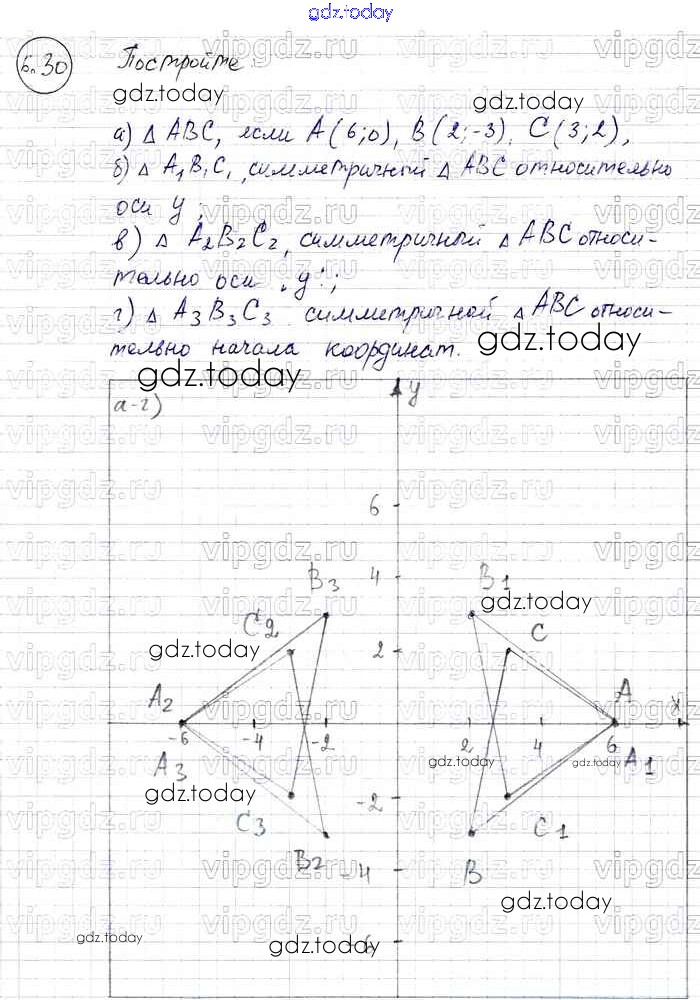 gdz.today
Б.30 Постройте
gdz.today gdz.today
а) △ ABC, если A(6;0), B(2;-3), C(3;2),
б) △ A₁B₁C₁, симметричный △ ABC относительно
оси y;
в) △ A₂B₂C₂, симметричный △ ABC относи-
тельно оси „y";
г) △ A₃B₃C₃ симметричной △ ABC относи-
тельно начала координат. gdz.today
gdz.today
а-г)
y
6
4
B3 B1
gdz.today
C2 C
gdz.today 2
A2 A x
-6 -4 -2 2 4 6
A3 A1
gdz.today gdz.today
gdz.today -2
C3 C1
B2 B
-4
gdz.today
gdz.today gdz.today -6
vipgdz.ru